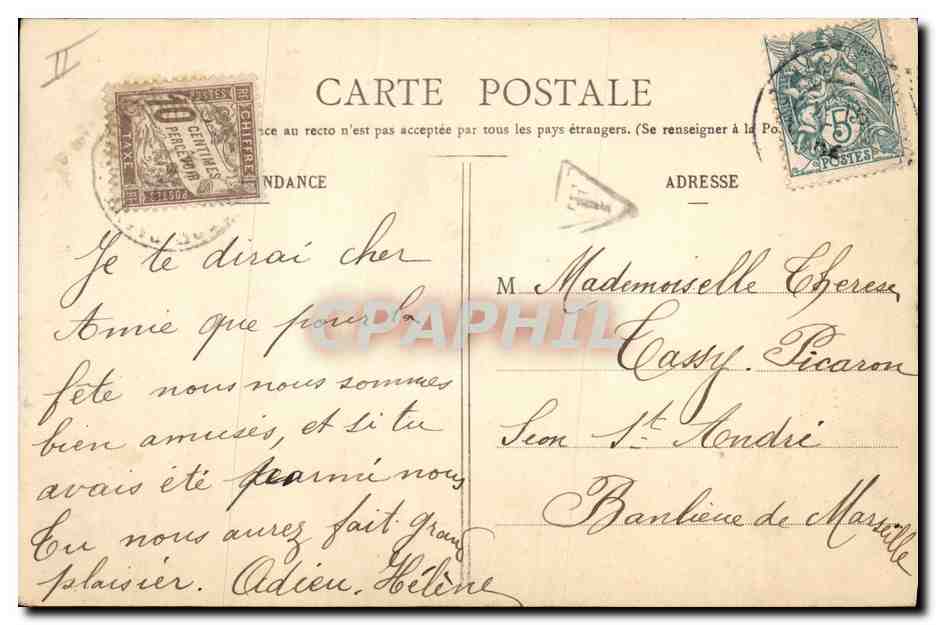 II
CARTE POSTALE
nce au recto n'est pas acceptée par tous les pays étrangers. (Se renseigner à la Po
NDANCE
ADRESSE
POSTES
CHIFFRE
10 CENTIMES
PERCEVOIR
TAXE
POSTES
5
POSTES
T
Je te dirai cher
Amie que pour la
fête nous nous sommes
bien amusés, et si tu
avais été parmi nous
Tu nous aurez fait grand
plaisier. Adieu. Hélène
M Mademoiselle Therese
Tassy. Picaron
Seon St André
Banlieue de Marseille
CPAPHIL